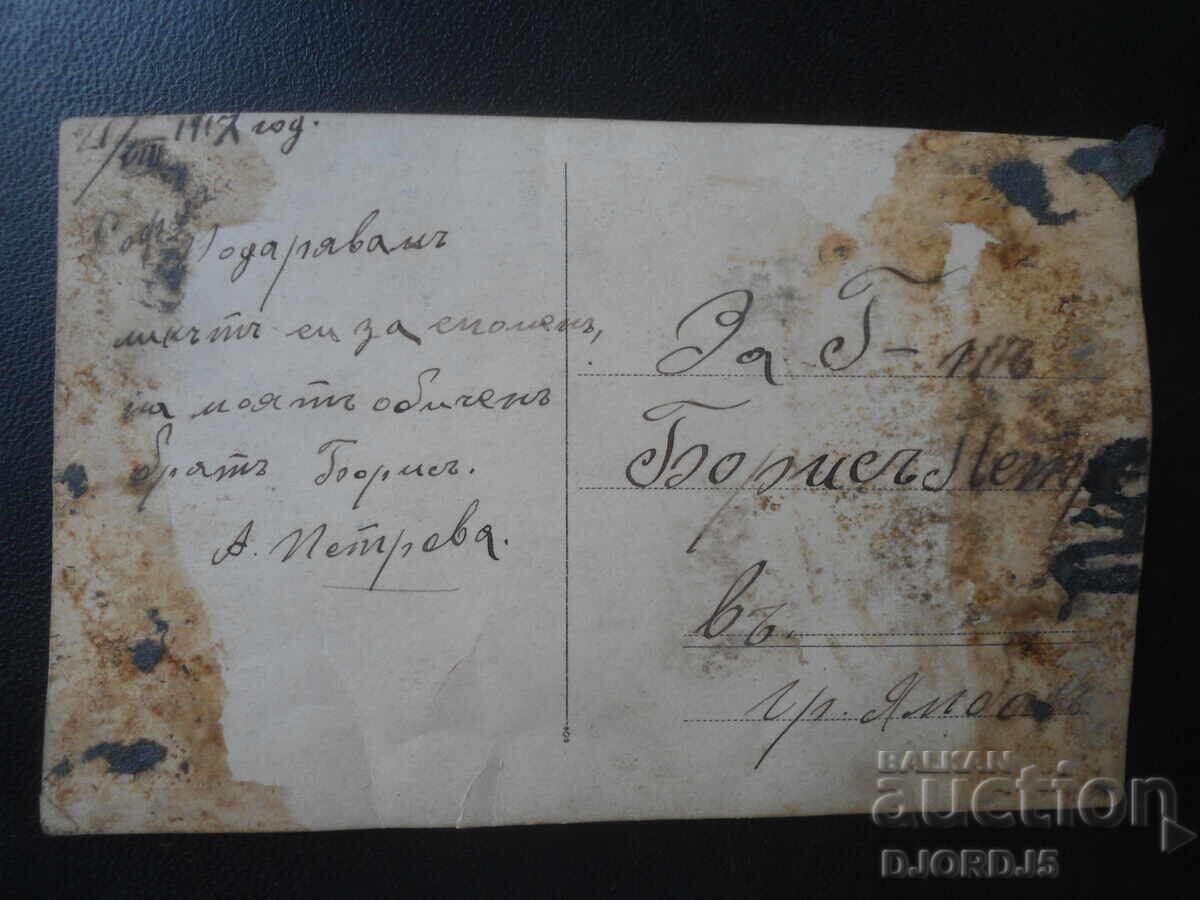 21/VIII 1917 год.
София
Подарявамъ
ликътъ си за споменъ,
на моятъ обиченъ
братъ Борисъ.
А. Петрева.
За Г-нъ
Борисъ Петр
въ
гр. Ямболъ
BALKAN
auction
DJORDJ5